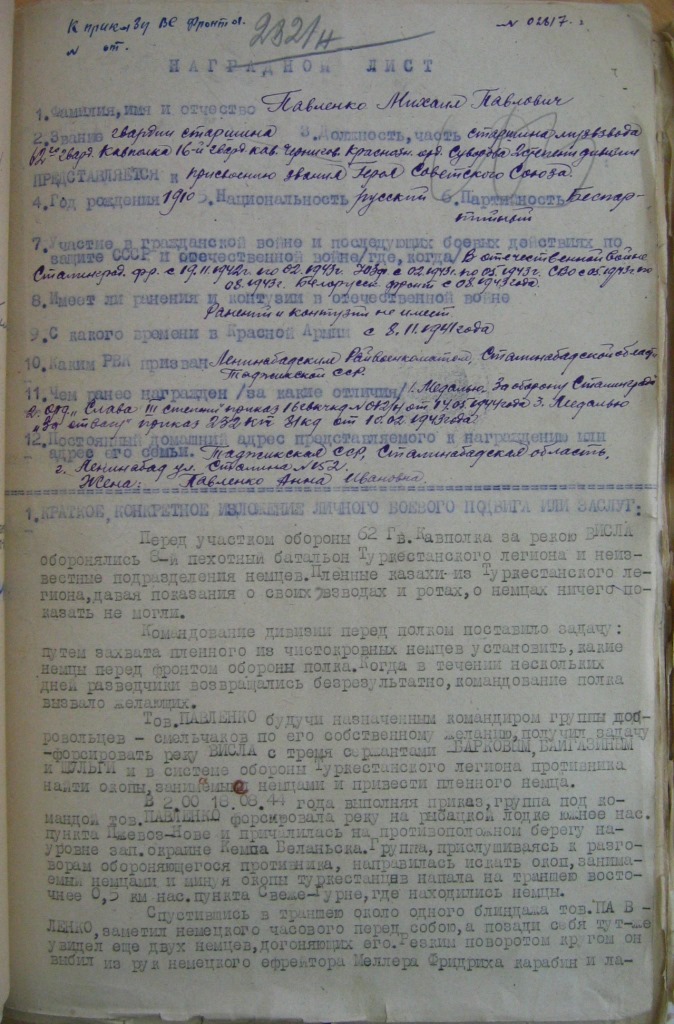 К приказу ВС Фронтов.
№ от.
2321н
№ 02817
НАГРАДНОЙ ЛИСТ
1. Фамилия, имя и отчество Павленко Михаил Павлович
2. Звание гвардии старшина 3. Должность, часть старшина
62го гвард. Кавполка 16-й гвард. кав. Чернигов. Краснозн. орд. Суворова 2 степени дивизии
ПРЕДСТАВЛЯЕТСЯ к присвоению звания Героя Советского Союза.
4. Год рождения 1910 5. Национальность русский 6. Партийность Беспар-
тийный
7. Участие в гражданской войне и последующих боевых действиях по
защите СССР и отечественной войне /где, когда/ В отечественной войне
Сталинград. фр. с 19.11.1942г. по 02.1943г. ЮЗф с 02.1943г. по 05.1943г. СВО с 05.1943г. по
08.1943г. Белорусск. фронт с 08.1943года.
8. Имеет ли ранения и контузии в отечественной войне
Ранений и контузий не имеет.
9. С какого времени в Красной Армии с 8.11.1941 года
10. Каким РВК призван Ленинабадским Райвоенкоматом, Сталинабадской области
Таджикской ССР.
11. Чем ранее награжден /за какие отличия/ 1. Медалью За оборону Сталинграда
2. орд. „Слава III степени" приказ 16 гвкд № 012/н от 17.03.1944года 3. Медалью
„За отвагу" приказ 232 КП 81кд от 10.02.1943года.
12. Постоянный домашний адрес представляемого к награждению или
адрес его семьи. Таджикская ССР, Сталинабадская область,
г. Ленинабад ул. Сталина №52.
Жена: Павленко Анна Ивановна.
1. КРАТКОЕ, КОНКРЕТНОЕ ИЗЛОЖЕНИЕ ЛИЧНОГО БОЕВОГО ПОДВИГА ИЛИ ЗАСЛУГ:
Перед участком обороны 62 Гв. Кавполка за рекою ВИСЛА
оборонялись 8-й пехотный батальон Туркестанского легиона и неиз-
вестные подразделения немцев. Пленные казахи из Туркестанского ле-
гиона, давая показания о своих взводах и ротах, о немцах ничего по-
казать не могли.
Командование дивизии перед полком поставило задачу:
путем захвата пленного из чистокровных немцев установить, какие
немцы перед фронтом обороны полка. Когда в течении нескольких
дней разведчики возвращались безрезультатно, командование полка
вызвало желающих.
Тов. ПАВЛЕНКО будучи назначенным командиром группы доб-
ровольцев - смельчаков по его собственному желанию, получил задачу
-форсировать реку ВИСЛА с тремя сержантами БАРКОВЫМ, БАЙГАЗИНЫМ
и ШУЛЬГИ и в системе обороны Туркестанского легиона противника
найти окопы, занимаемые немцами и привести пленного немца.
В 2.00 18.08.44 года выполняя приказ, группа под ко-
мандой тов. ПАВЛЕНКО форсировала реку на рыбацкой лодке южнее нас.
пункта Яжевов-Нове и причалилась на противоположном берегу на-
уровне зап. окраине Кемпа Беланьска. Группа, прислушиваясь к разго-
ворам обороняющегося противника, направилась искать окоп, занима-
емый немцами и минуя окопы туркестанцев напала на траншею восто-
чнее 0,5 км нас. пункта Свеже-Гурне, где находились немцы.
Спустившись в траншею около одного блиндажа тов. ПАВ-
ЛЕНКО, заметил немецкого часового перед собою, а позади себя тут-же
увидел еще двух немцев, догоняющих его. Резким поворотом кругом он
выбил из рук немецкого ефрейтора Меллера Фридриха карабин и ла-